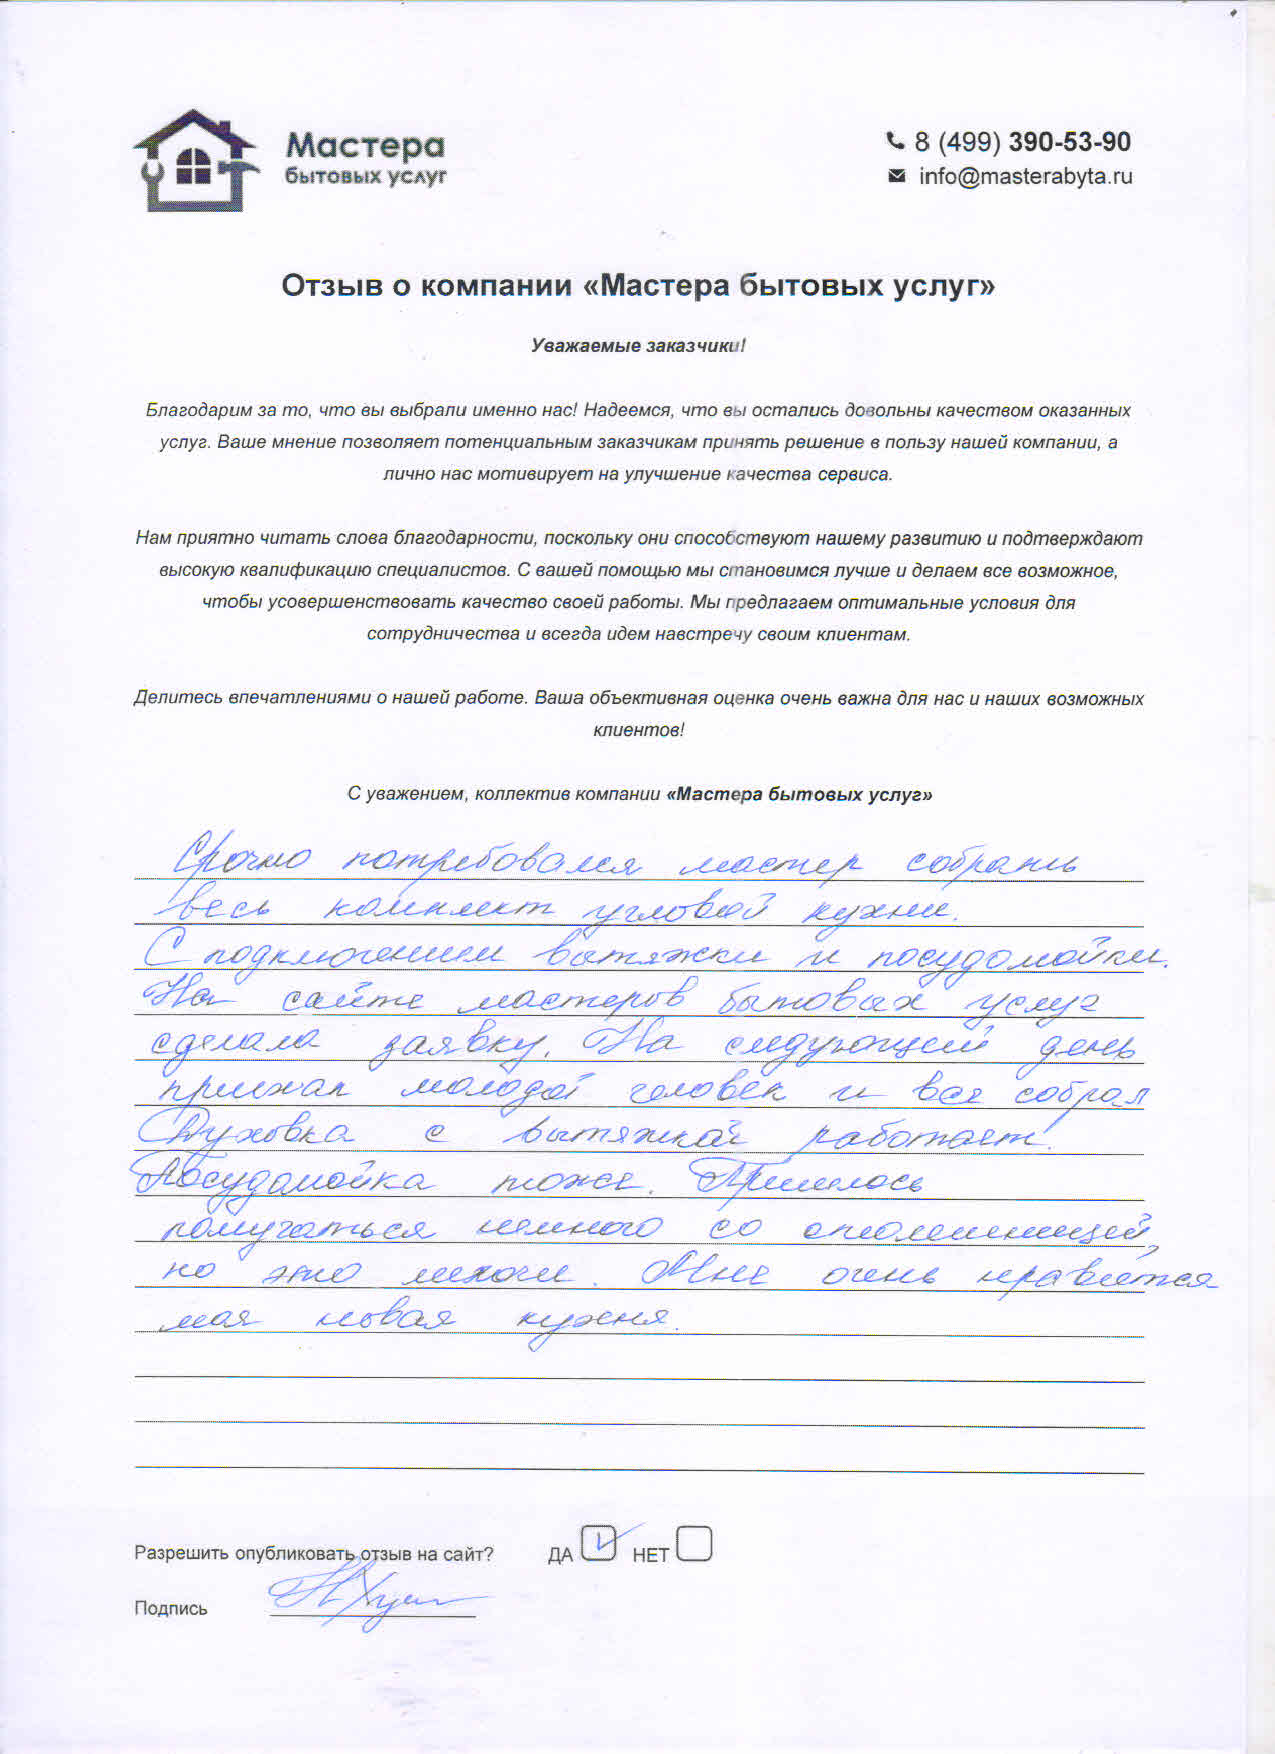 Мастера
бытовых услуг
8 (499) 390-53-90
info@masterabyta.ru
Отзыв о компании «Мастера бытовых услуг»
Уважаемые заказчики!
Благодарим за то, что вы выбрали именно нас! Надеемся, что вы остались довольны качеством оказанных
услуг. Ваше мнение позволяет потенциальным заказчикам принять решение в пользу нашей компании, а
лично нас мотивирует на улучшение качества сервиса.
Нам приятно читать слова благодарности, поскольку они способствуют нашему развитию и подтверждают
высокую квалификацию специалистов. С вашей помощью мы становимся лучше и делаем все возможное,
чтобы усовершенствовать качество своей работы. Мы предлагаем оптимальные условия для
сотрудничества и всегда идем навстречу своим клиентам.
Делитесь впечатлениями о нашей работе. Ваша объективная оценка очень важна для нас и наших возможных
клиентов!
С уважением, коллектив компании «Мастера бытовых услуг»
Срочно потребовался мастер собрать
весь комплект угловой кухни.
С подключением вытяжки и посудомойки.
На сайте мастеров бытовых услуг
сделала заявку. На следующий день
приехал молодой человек и все собрал
Духовка с вытяжкой работает.
Посудомойка тоже. Пришлось
помучаться немного со столешницей,
но это мелочи. Мне очень нравится
моя новая кухня.
Разрешить опубликовать отзыв на сайт? ДА НЕТ
Подпись